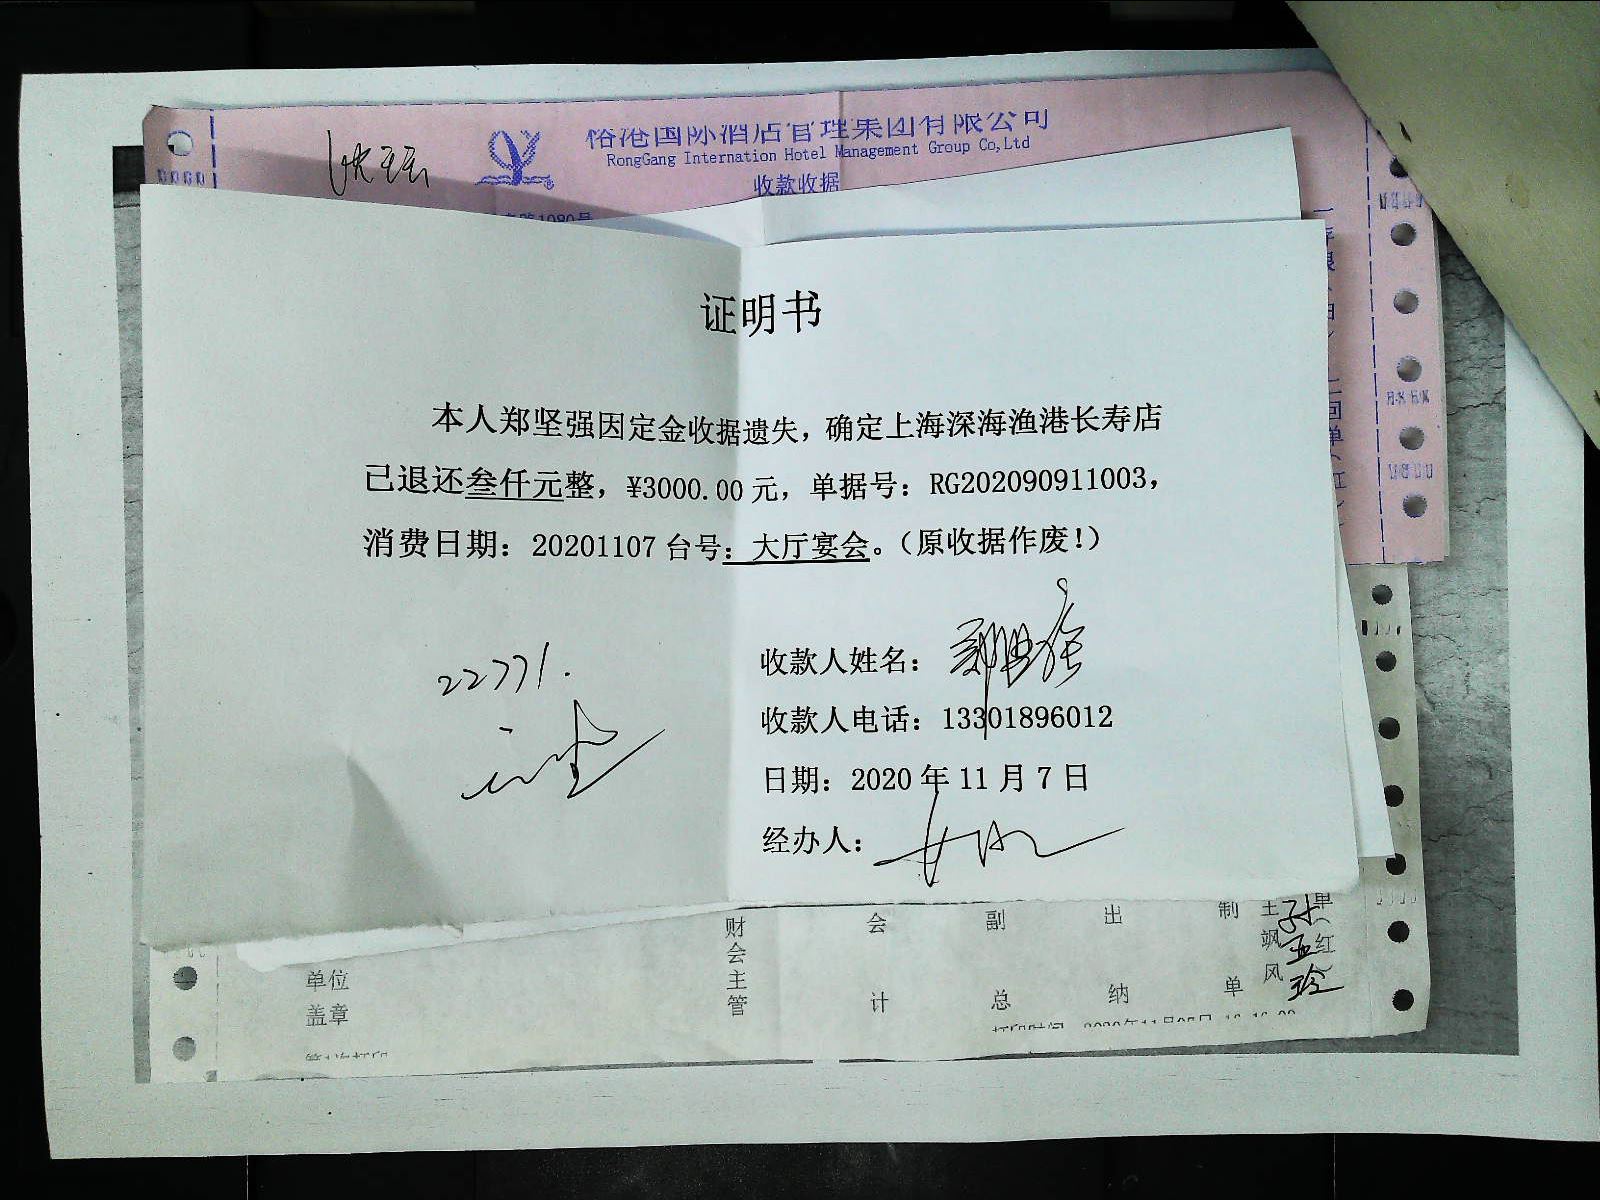 沈珏
榕港国际酒店管理集团有限公司
RongGang International Hotel Management Group Co,Ltd
收款收据
路1080号
证明书
本人郑坚强因定金收据遗失，确定上海深海渔港长寿店
已退还叁仟元整，¥3000.00元，单据号：RG202090911003，
消费日期：20201107台号：大厅宴会。（原收据作废！）
22771.
收款人姓名：郑坚强
收款人电话：13301896012
日期：2020年11月7日
经办人：
单位
盖章
财会主管
会计
副总
出纳
制单
王飒风
孙亚玲